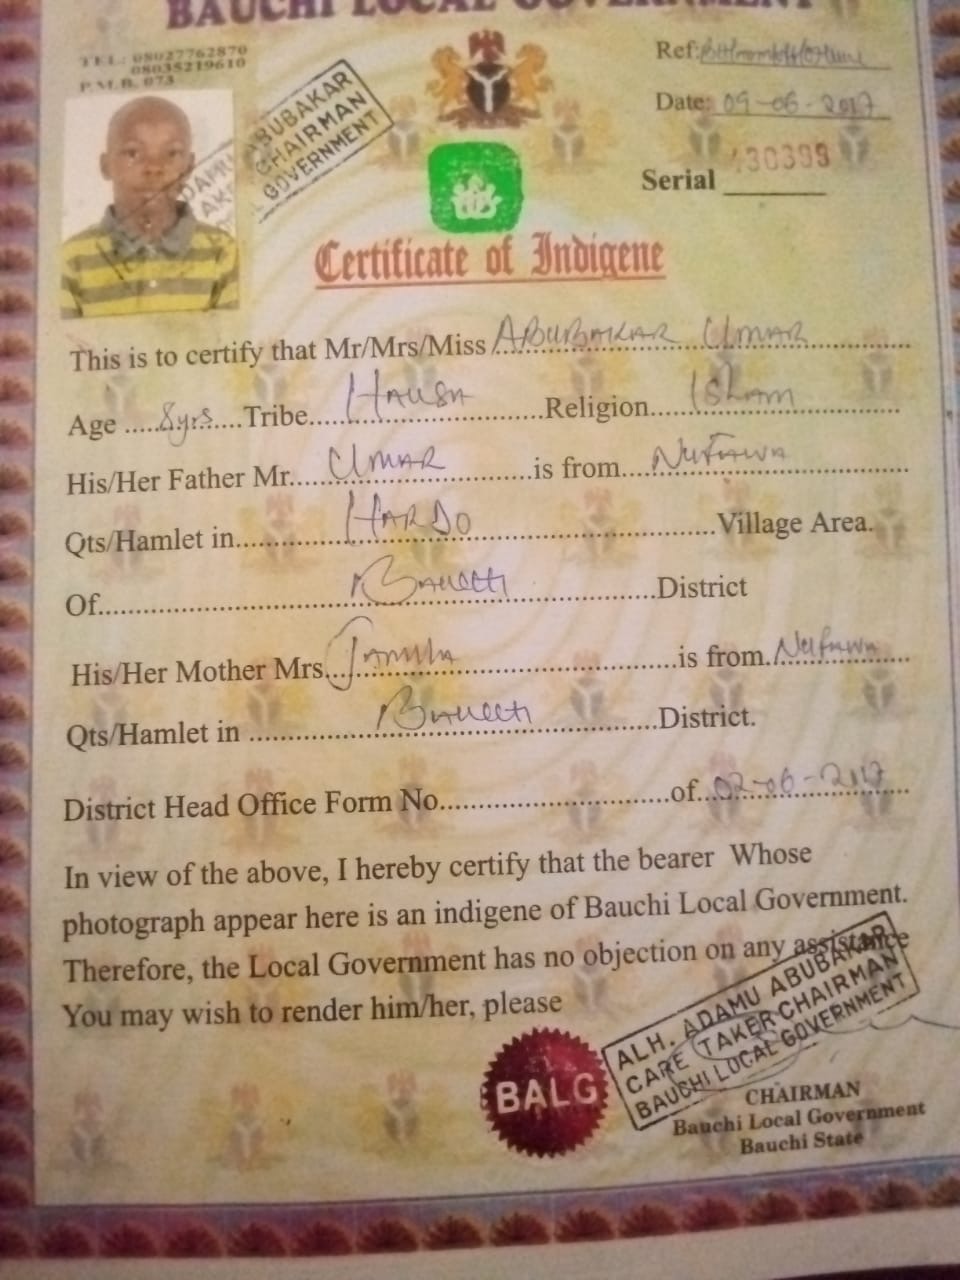 BAUCHI LOCAL GOVERNMENT
TEL: 08027762870
08035219610
P.M.B. 073
Ref:
Date: 09-06-2017
Serial 430399
ABUBAKAR
CHAIRMAN
GOVERNMENT
Certificate of Indigene
This is to certify that Mr/Mrs/Miss ABUBAKAR UMAR
Age .....8yrs....Tribe....HAUSA....Religion....ISLAM
His/Her Father Mr....UMAR....is from....NUFAWA
Qts/Hamlet in....HARDO....Village Area.
Of....BAUCHI....District
His/Her Mother Mrs....JAMILA....is from....NUFAWA
Qts/Hamlet in ....BAUCHI....District.
District Head Office Form No....of...02-06-2017
In view of the above, I hereby certify that the bearer Whose
photograph appear here is an indigene of Bauchi Local Government.
Therefore, the Local Government has no objection on any assistance
You may wish to render him/her, please
ALH. ADAMU ABUBAKAR
CARE TAKER CHAIRMAN
BAUCHI LOCAL GOVERNMENT
BALG
CHAIRMAN
Bauchi Local Government
Bauchi State